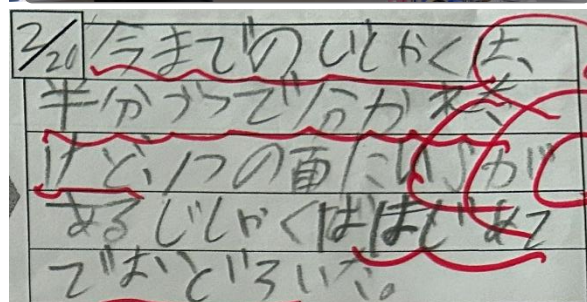 2/20 今までのじしゃくは、
半分づつで分かれる
けど、1つの面にいろが
あるじしゃくははじめて
でおどろいた。